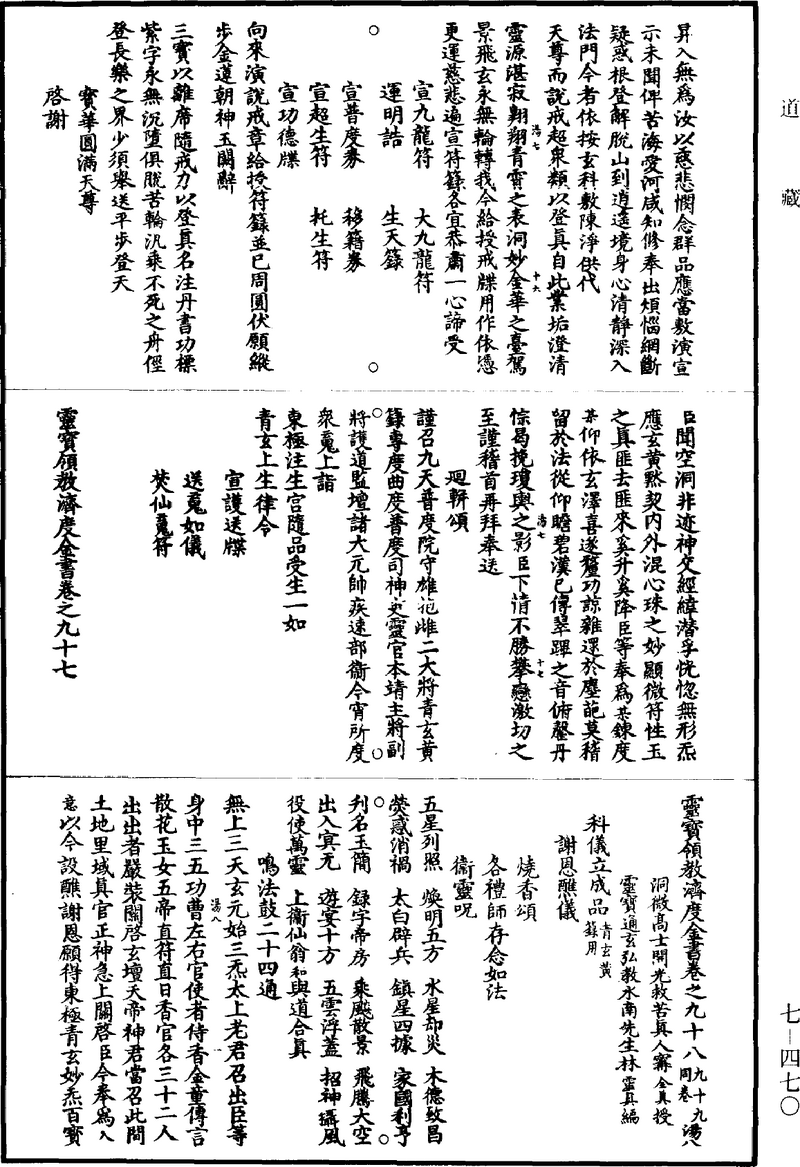 道藏
七—四七〇
昇入無為汝以慈悲憫念群品應當敷演宣
示未聞俾苦海愛河咸知修奉出煩惱網斷
疑惑根登解脫山到逍遙境身心清靜深入
法門今者依按玄科敷陳淨供代
天尊而說戒超衆類以登真自此業垢澄清
湯七
十六
靈源湛寂翺翔青霄之表洞妙金華之臺駕
景飛玄永無輪轉我今給授戒牒用作依憑
更運慈悲遍宣符籙各宜恭肅一心諦受
宣九龍符　大九龍符
運明誥　生天籙
宣普度券　移籍券
宣超生符　托生符
宣功德牒
向來演說戒章給授符籙並已周圓伏願縱
步金蓮朝神玉闕辭
三寶以離席隨戒力以登真名注丹書功標
紫字永無沉墮俱脫苦輪汎乘不死之舟徑
登長樂之界少須舉送平步登天
寶華圓滿天尊
啓謝
臣聞空洞非迹神交經緯潛孚恍惚無形炁
應玄黃黙契內外混心珠之妙顯微符性玉
之真匪去匪來奚升奚降臣等奉為某鍊度
某仰依玄澤喜遂釐功諒難還於塵葩莫稽
留於法從仰瞻碧漢已傳翠蹕之音俯罄丹
湯七
十七
悰曷挽瓊輿之影臣下情不勝攀戀激切之
至謹稽首再拜奉送
迴輧頌
謹召九天普度院守雄抱雌二大將青玄黃
籙專度曲度普度司神吏靈官本靖主將副
將護道監壇諸大元帥疾速部衞今宵所度
衆䰟上詣
東極注生宮隨品受生一如
青玄上生律令
宣護送牒
送䰟如儀
焚仙䰟符
靈寶領教濟度金書卷之九十七
靈寶領教濟度金書卷之九十八 九十九同卷 湯八
洞微高士開光救苦真人甯全真授
靈寶通玄弘教水南先生林靈真編
科儀立成品 青玄黃籙用
謝恩醮儀
燒香頌
各禮師存念如法
衞靈呪
五星列照　煥明五方　水星却災　木德致昌
熒惑消禍　太白辟兵　鎮星四據　家國利亨
列名玉簡　録字帝房　乘飈散景　飛騰太空
出入冥无　遊宴十方　五雲浮蓋　招神攝風
役使萬靈　上衞仙翁　和與道合真
鳴法鼓二十四通
無上三天玄元始三炁太上老君召出臣等
湯八
身中三五功曹左右官使者侍香金童傳言
散花玉女五帝直符直日香官各三十二人
出出者嚴裝關啓玄壇天帝神君當召此間
土地里域真官正神急上關啓臣今奉為入
意以今設醮謝恩願得東極青玄妙炁百寶